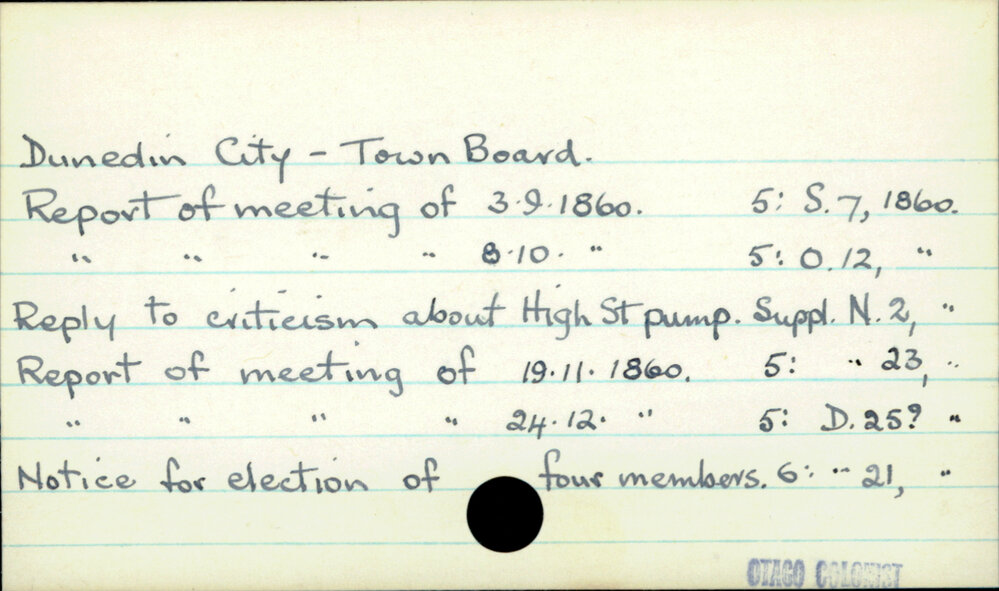 Dunedin City - Town Board.
Report of meeting of 3.9.1860. 5: S.7, 1860.
" " " " 8.10. " 5: O.12, "
Reply to criticism about High St pump. Suppl. N.2, "
Report of meeting of 19.11.1860. 5: " 23, "
" " " " 24.12. " 5: D.25? "
Notice for election of four members. 6: " 21, "
OTAGO COLONIST